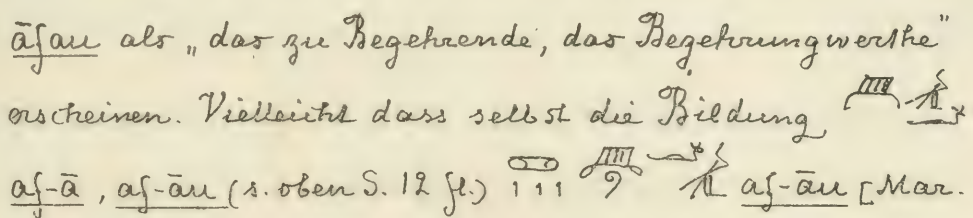 āfau als „das zu Begehrende, das Begehrungwerthe"
erscheinen. Vielleicht dass selbst die Bildung
af-ā, af-āu (s. oben S. 12 fl.) af-āu [Mar.